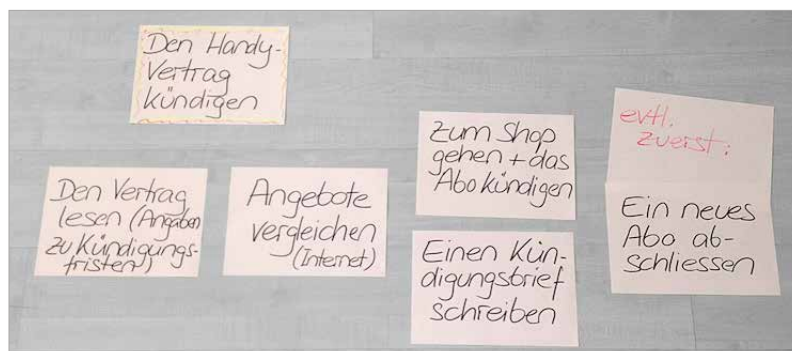 Den Handy-
Vertrag
kündigen
Den Vertrag
lesen (Angaben
zu Kündigungs-
fristen)
Angebote
vergleichen
(Internet)
Zum Shop
gehen + das
Abo kündigen
Einen Kün-
digungsbrief
schreiben
evtl.
zuerst:
Ein neues
Abo ab-
schliessen